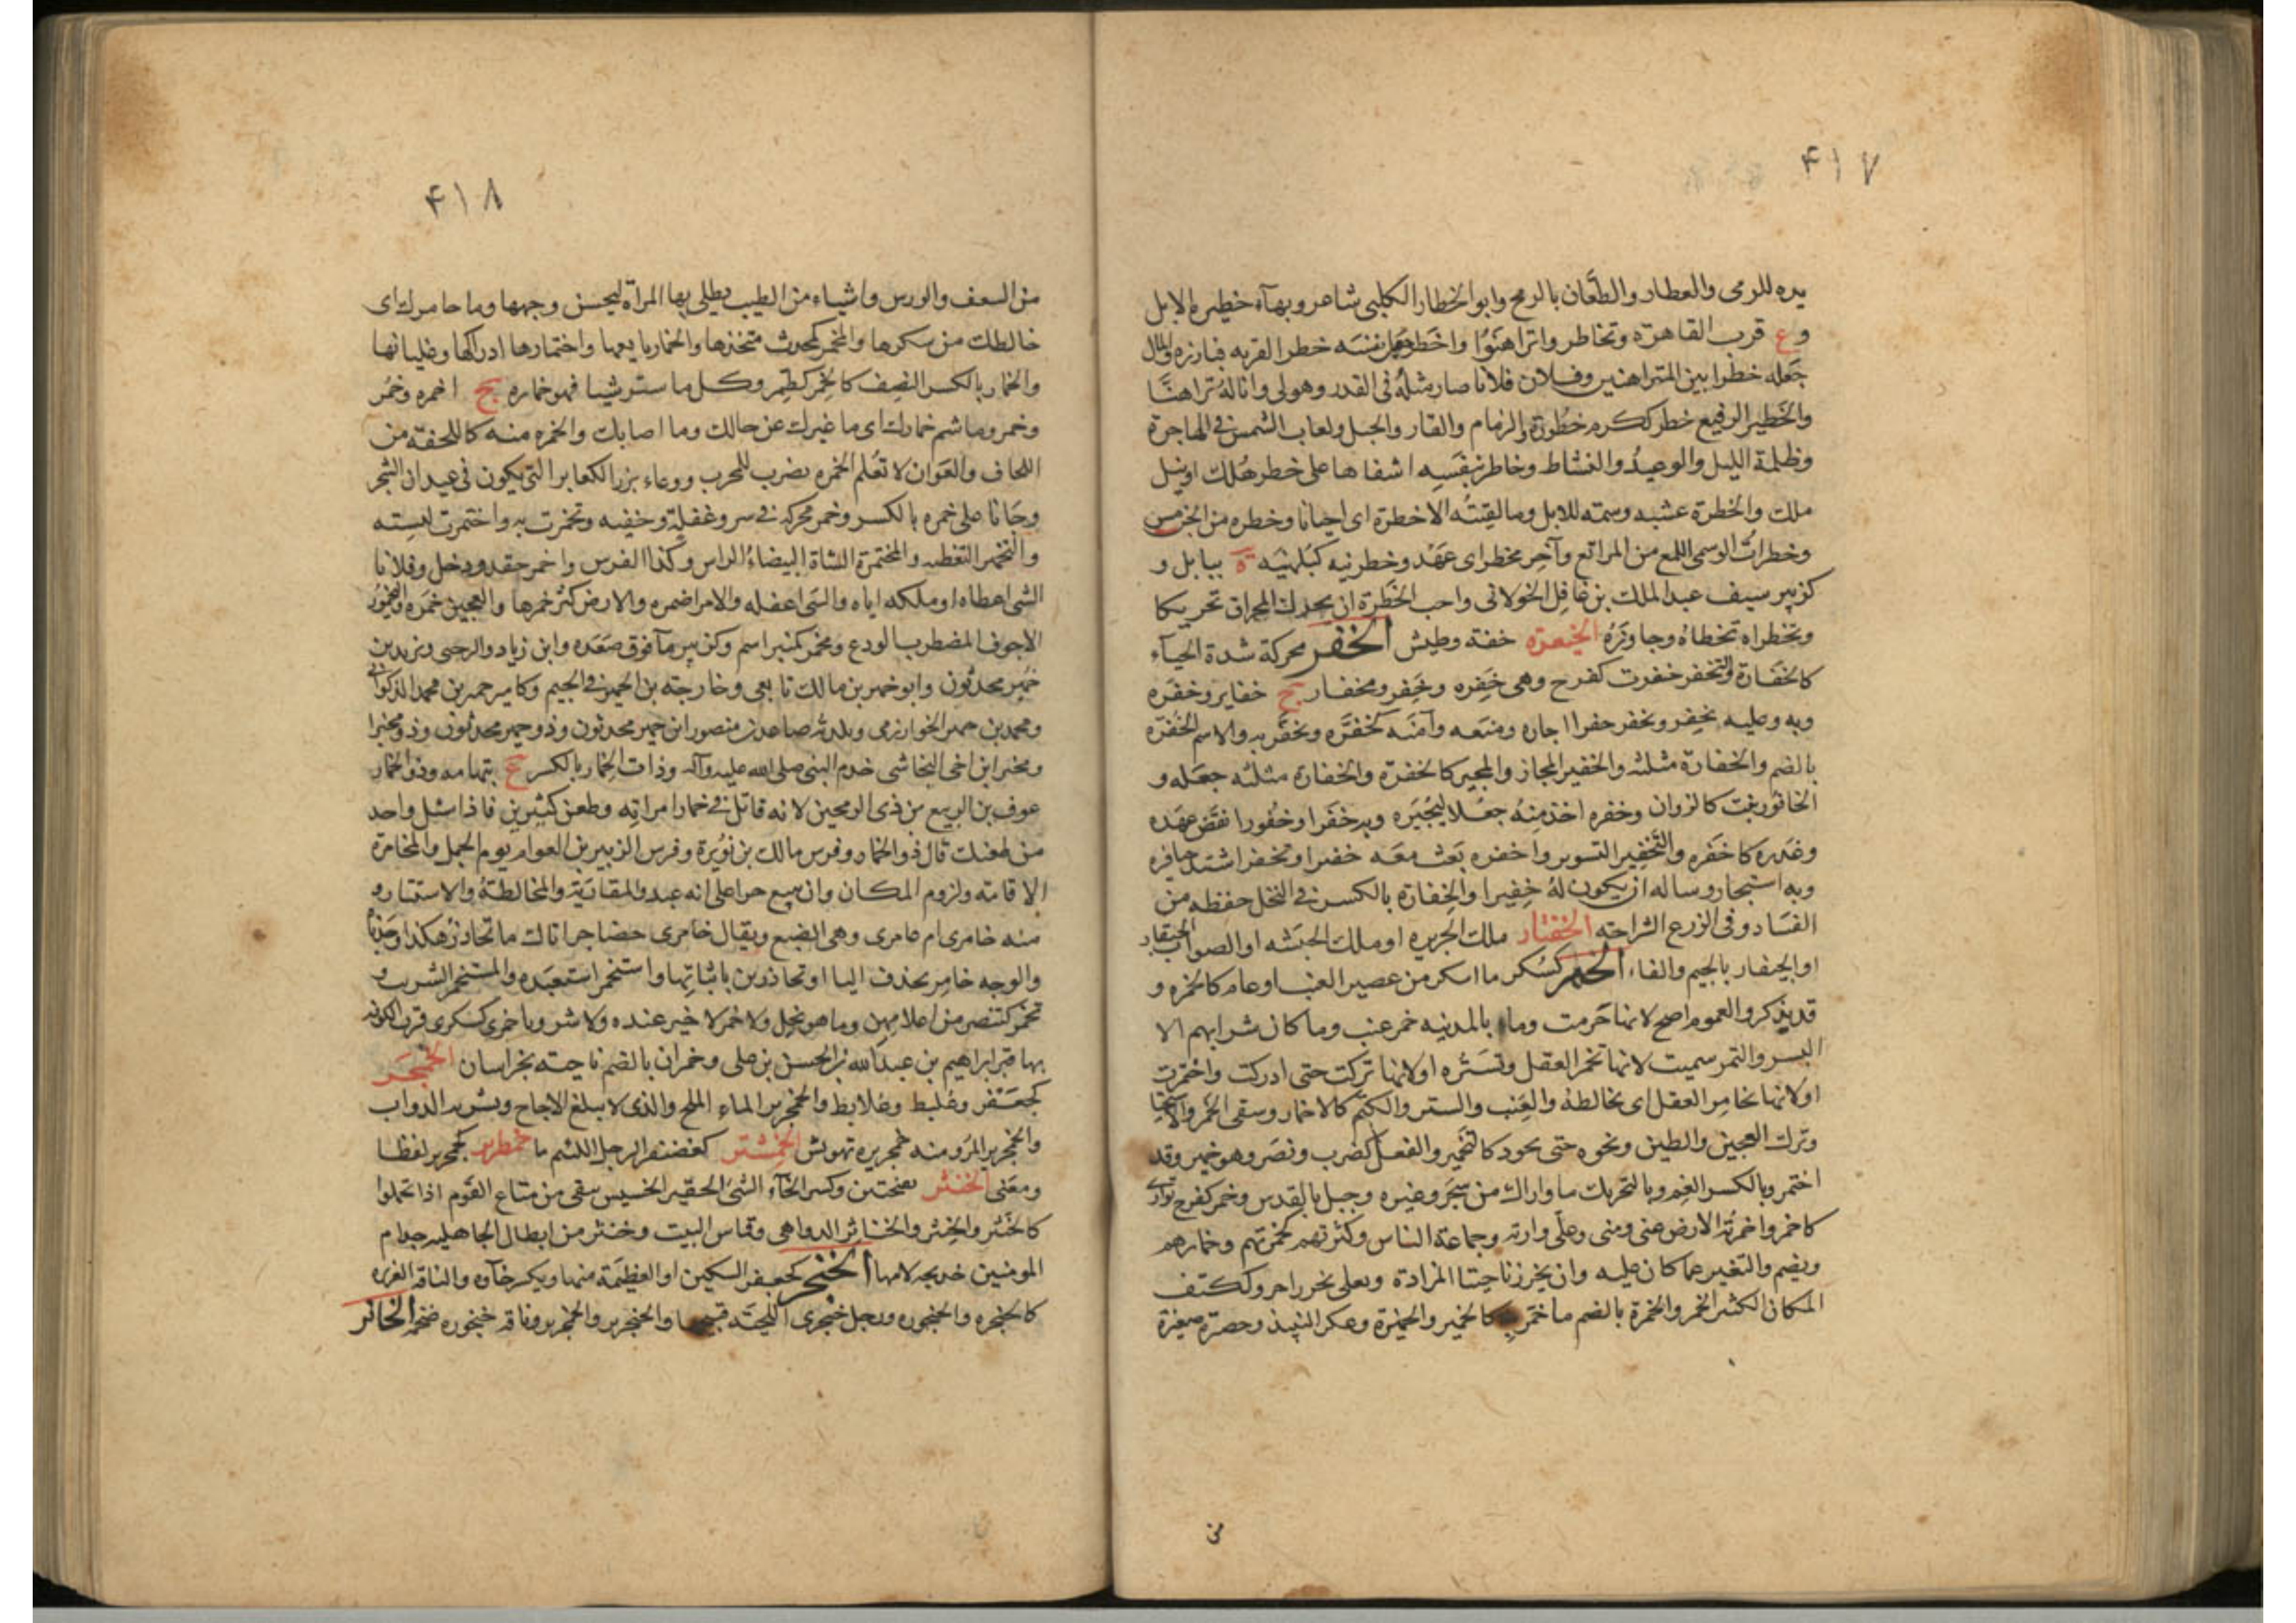 ۴۱۷
يده للرمى والعطار والطعّان بالرمح وابو الخطار الكلبى شاعر وبهآء خطيره الابل
وع قرب القاهرة وتخاطروا تراهنوا واخطر جعل نفسه خطر القربه فبارزه والمال
جعله خطرا بين المتراهنين وفلان فلانا صار مثله فى القدر وهو لى وانا له تراهنّا
والخطير الرفيع خطر ككرم خطورة والزمام والقار والحبل ولعاب الشمس فى الهاجرة
وظلمة الليل والوعيد والنشاط وخاطر بنفسه اشفاها على خطر هلك او نيل
ملك والخطرة عشبه وسمته للابل وما لقيته الا خطرة اى احيانا وخطره من الجن مس
وخطرات الوسمى اللمع من المراتع وآخر مخطر اى عهد وخطرنيه كبلهنيه ة ببابل و
كزبير سيف عبد الملك بن غافل الخولانى ولعب الخطرة ان يحرك المخراق تحريكا
وتخطراه تخطاه وجاوزه الخيعرة خفة وطيش الخفر محركة شدة الحيآء
كالخفارة والتخفر خفرت كفرح وهى خفره وخفر ومخفار ج خفاير وخفره
وبه وعليه يخفر ويخفر خفرا اجاره ومنعه وآمنه كخفّره وتخفّر به والاسم الخفرة
بالضم والخفارة مثلثه والخفير المجار والمجير كالخفرة والخفارة مثلثه جعله و
الخافور نبت كالزوان وخفره اخذ منه جعلا ليجيره وبه خفرا وخفورا نقض عهده
وغدره كاخفره والتخفير التسوير واخفره بعث معه خفيرا وتخفر اشتد حيآؤه
وبه استجار وساله ان يكون له خفيرا والخفارة بالكسر فى النخل حفظه من
الفساد وفى الزرع الشراحة الخفتار ملك الجزيره او ملك الحبشه او الصواب الحيقار
او الجيفار بالجيم والفاء الخمر كسكر ما اسكر من عصير العنب او عام كالخمره و
قد يذكر والعموم اصح لانها حرمت وما بالمدينه خمر عنب وما كان شرابهم الا
البسر والتمر سميت لانها تخمر العقل وتستره او لانها تركت حتى ادركت واختمرت
او لانها تخامر العقل اى تخالطه والعنب والستر والكتم كالاخمار وسقى الخمر والاستحيا
وترك العجين والطين ونحوه حتى يجود كالتخمير والفعل كضرب ونصر وهو خمير وقد
اختمر وبالكسر الغمر وبالتحريك ما واراك من شجر وغيره وجبل بالقدس وخمر كفرح توارى
كاخمر واخمرته الارض عنى ومنى وعلى وارته وجماعة الناس وكثرتهم كخمرتهم وخمارهم
ويضم والتغير عما كان عليه وان يخرز ناحيتا المزادة ويعلى بخرز اخر وككتف
المكان الكثير الخمر والخمرة بالضم ما خمر به كالخمير والخميرة وعكر النبيذ وحصيرة صغيرة
من
۴۱۸
من السعف والورس واشياء من الطيب يطلى بها المراة ليحسن وجهها وما خامرك اى
خالطك من سكرها والمخمر كمحدث متخذها والخمار بايعها واختمارها ادراكها وغليانها
والخمار بالكسر النصيف كالخمر كطمر وكل ما ستر شيا فهو خماره ج اخمره وخمر
وخمر وما شم خمارك اى ما غيرك عن حالك وما اصابك والخمره منه كاللحفة من
اللحاف والعوان لا تعلم الخمره يضرب للمجرب ووعاء بزر الكعابر التى يكون فى عيدان الشجر
وجانا على خمره بالكسر وخمر محركه فى سر وغفلة وخفيه وتخمرت به واختمرت لبسته
والتخمير التغطيه والمختمرة الشاة البيضاء الراس وكذا الفرس واخمر حقد ودخل وفلانا
الشى اعطاه او ملكه اياه والشى اغفله والامر اضمره والارض كثر خمرها والعجين خمره واليخمور
الاجوف المضطرب الودع ومخمر كمنبر اسم وكزبير مآ فوق صعده وابن زياد والرحبى ويزيد بن
خمير محدثون وابو خمير بن مالك تابعى وخارجة بن الحمير فى الجيم وكامير خمير بن محمد الذكوانى
ومحمد بن خمير الخوارزمى وبلديه صاعد بن منصور ابن خمير محدثون وذو خمير محدثون وذو مخبرا
ومخبر ابن اخى النجاشى خدم النبى صلى الله عليه وآله وذات الخمار بالكسر ع بتهامه وذو الخمار
عوف بن الربيع من ذى الرمحين لانه قاتل فى خمار امراته وطعن كثيرين فاذا سئل واحد
من طعنك قال ذو الخمار وفرس مالك بن نويرة وفرس الزبير بن العوام يوم الجمل والمخامرة
الاقامة ولزوم المكان وان يبيع حرا على انه عبد والمقاربة والمخالطة والاستتار و
منه خامرى ام عامر وهى الضبع ويقال خامرى حضاجر اتاك ما تحاذر هكذا وجدنا
والوجه خامر بحذف اليا او تحاذرين باثباتها واستخمر استعبده والمستخمر الشريب و
تخمر كتنصر من اعلامهن وما هو بخل ولا خمر لا خير عنده ولا شر وباخمرى كسكرى قرب الكوفه
بها قبر ابراهيم بن عبد الله بن الحسن بن على وخمران بالضم ناحية بخراسان الخمجر
كجعفر وعلبط وعلابط والخمجرير الماء الملح والذى لا يبلغ الاجاج ويشربه الدواب
والخمجرير المر ومنه خمجريره تهويش الخمشتر كغضنفر الرجل اللئيم ما خمطرير كخمجرير لفظا
ومعنى الخنثر بفتحتين وكسر الخآء الشئ الحقير الخسيس سقى من متاع القوم اذا تحملوا
كالخنثر والخنثر والخناثر الدواهى وقماس البيت وخنثر من ابطال الجاهليه جد ام
المومنين خديجه لامها الخنجر كجعفر السكين او العظيمة منها ويكسر خآوه والناقة الغزره
كالخنجره والخنجوره ورجل خنجرى اللحية قبيحها والخنجرير والخمجرير وناقة خنجوره ضخمه الخانر